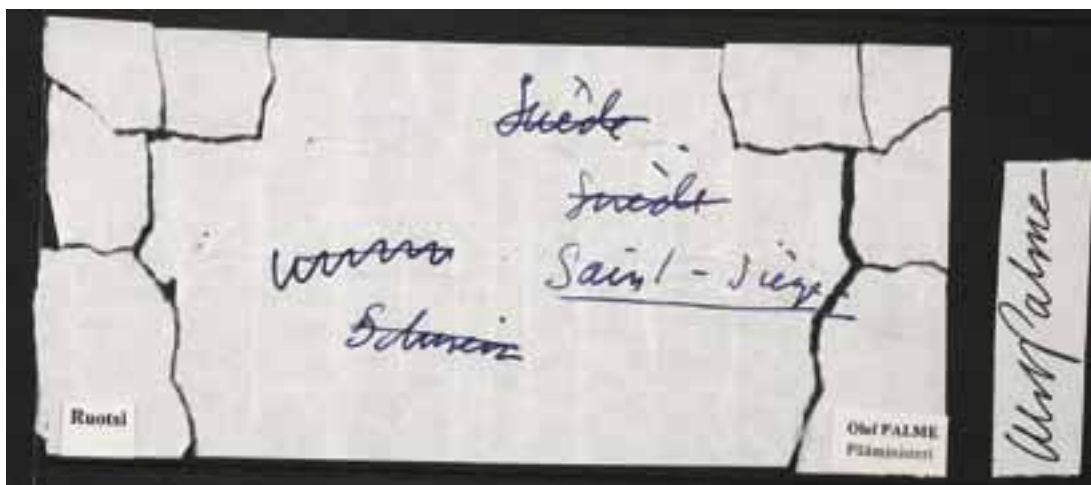 Suède
Suède
Saint-Siège
Ruotsi
Olof PALME
Pääministeri
Palme